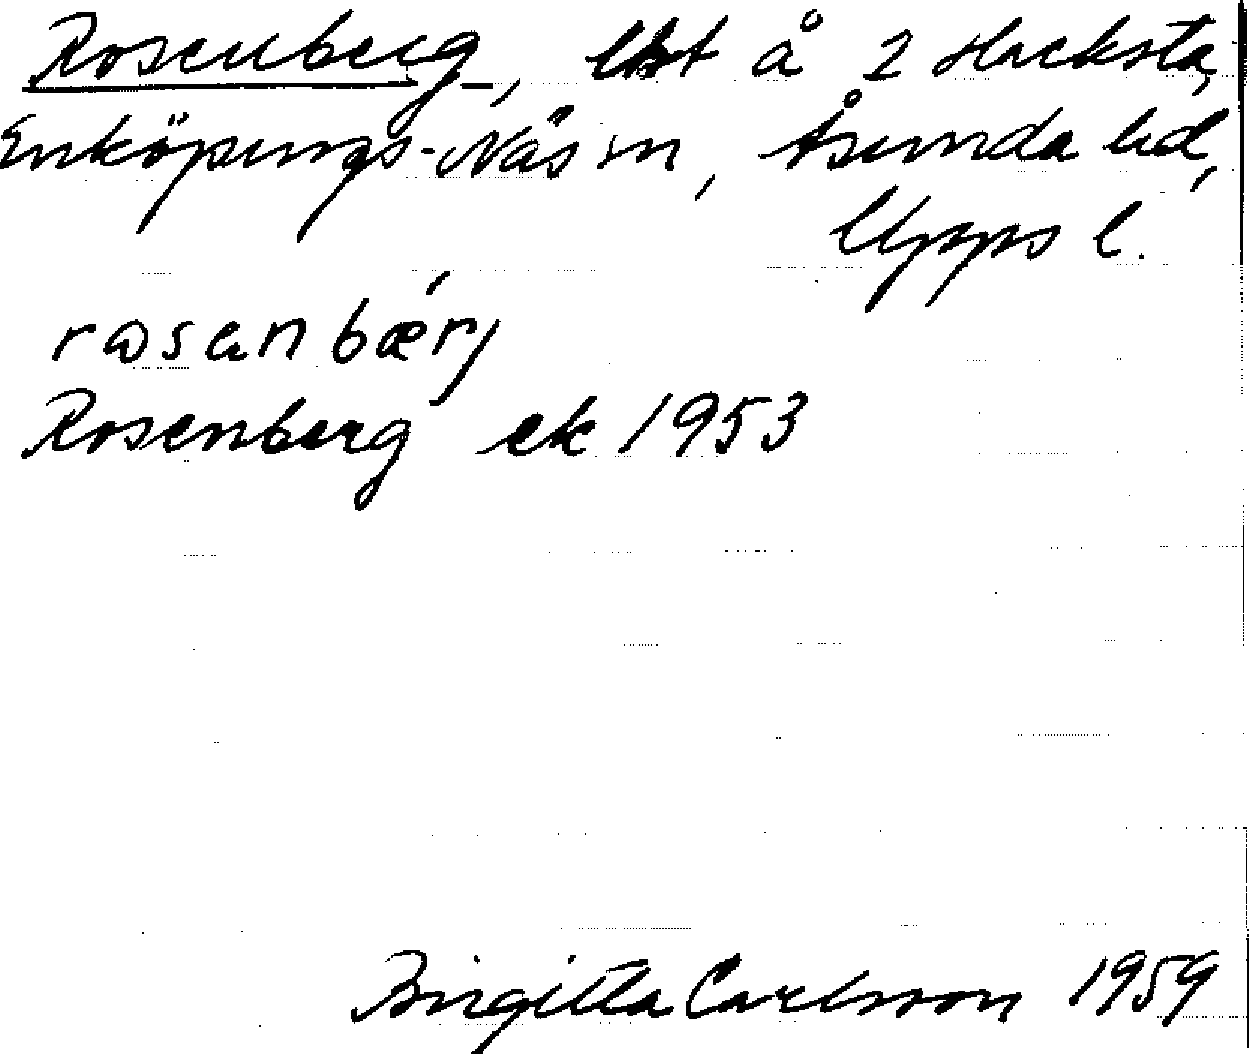 Rosenberg, lht å 2 Hacksta,
Enköpings-Näs sn, Åsunda hd,
Upps l.
rωsanbærj
Rosenberg ek 1953
Birgitta Carlsson 1959